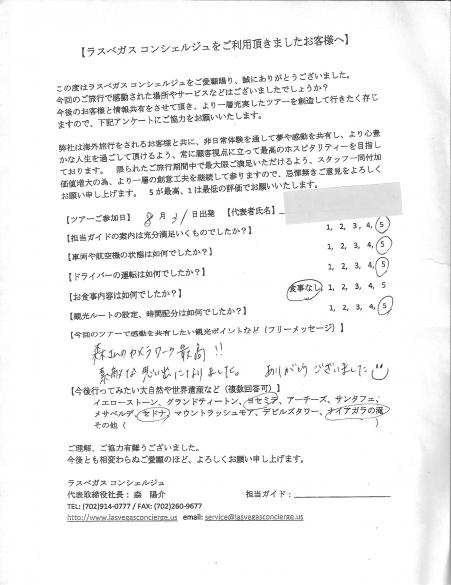 【ラスベガス コンシェルジュをご利用頂きましたお客様へ】
この度はラスベガス コンシェルジュをご愛顧賜り、誠にありがとうございました。
今回のご旅行で感動された場所やサービスなどはございましたでしょうか？
今後のお客様と情報共有をさせて頂き、より一層充実したツアーを創造して行きたく存じ
ますので、下記アンケートにご協力をお願いいたします。
弊社は海外旅行をされるお客様と共に、非日常体験を通して夢や感動を共有し、より心豊
かな人生を過ごして頂けるよう、常に顧客視点に立って最高のホスピタリティーを目指し
ております。 限られたご旅行期間中で最大限ご満足いただけるよう、スタッフ一同付加
価値増大の為、より一層の創意工夫を継続して参りますので、忌憚無きご意見をよろしく
お願い申し上げます。 5が最高、1は最低の評価でお願いいたします。
【ツアーご参加日】 8月31日出発 【代表者氏名】
【担当ガイドの案内は充分満足いくものでしたか？】 1, 2, 3, 4, 5
【車両や航空機の状態は如何でしたか？】 1, 2, 3, 4, 5
【ドライバーの運転は如何でしたか？】 1, 2, 3, 4, 5
【お食事内容は如何でしたか？】 食事なし 1, 2, 3, 4, 5
【観光ルートの設定、時間配分は如何でしたか？】 1, 2, 3, 4, 5
【今回のツアーで感動を共有したい観光ポイントなど（フリーメッセージ）】
森さんのカメラワーク最高!!
素敵な思い出になりました。 ありがとうございました
【今後行ってみたい大自然や世界遺産など（複数回答可）】
イエローストーン、グランドティートン、ヨセミテ、アーチーズ、サンタフェ、
メサベルデ、セドナ、マウントラッシュモア、デビルズタワー、ナイアガラの滝
その他（
ご理解、ご協力有難うございました。
今後とも相変わらぬご愛顧のほど、よろしくお願い申し上げます。
ラスベガス コンシェルジュ
代表取締役社長： 森 陽介 担当ガイド：
TEL: (702)914-0777 / FAX: (702)260-9677
http://www.lasvegasconcierge.us email: service@lasvegasconcierge.us